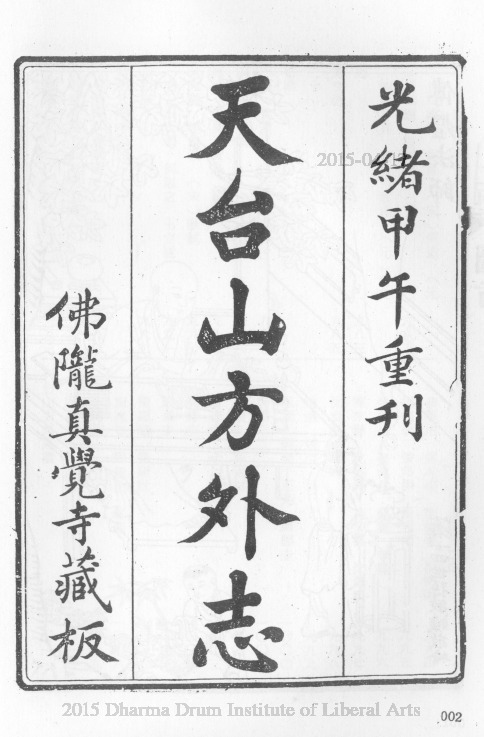 光緒甲午重刊
天台山方外志
佛隴真覺寺藏板
2015 Dharma Drum Institute of Liberal Arts
002